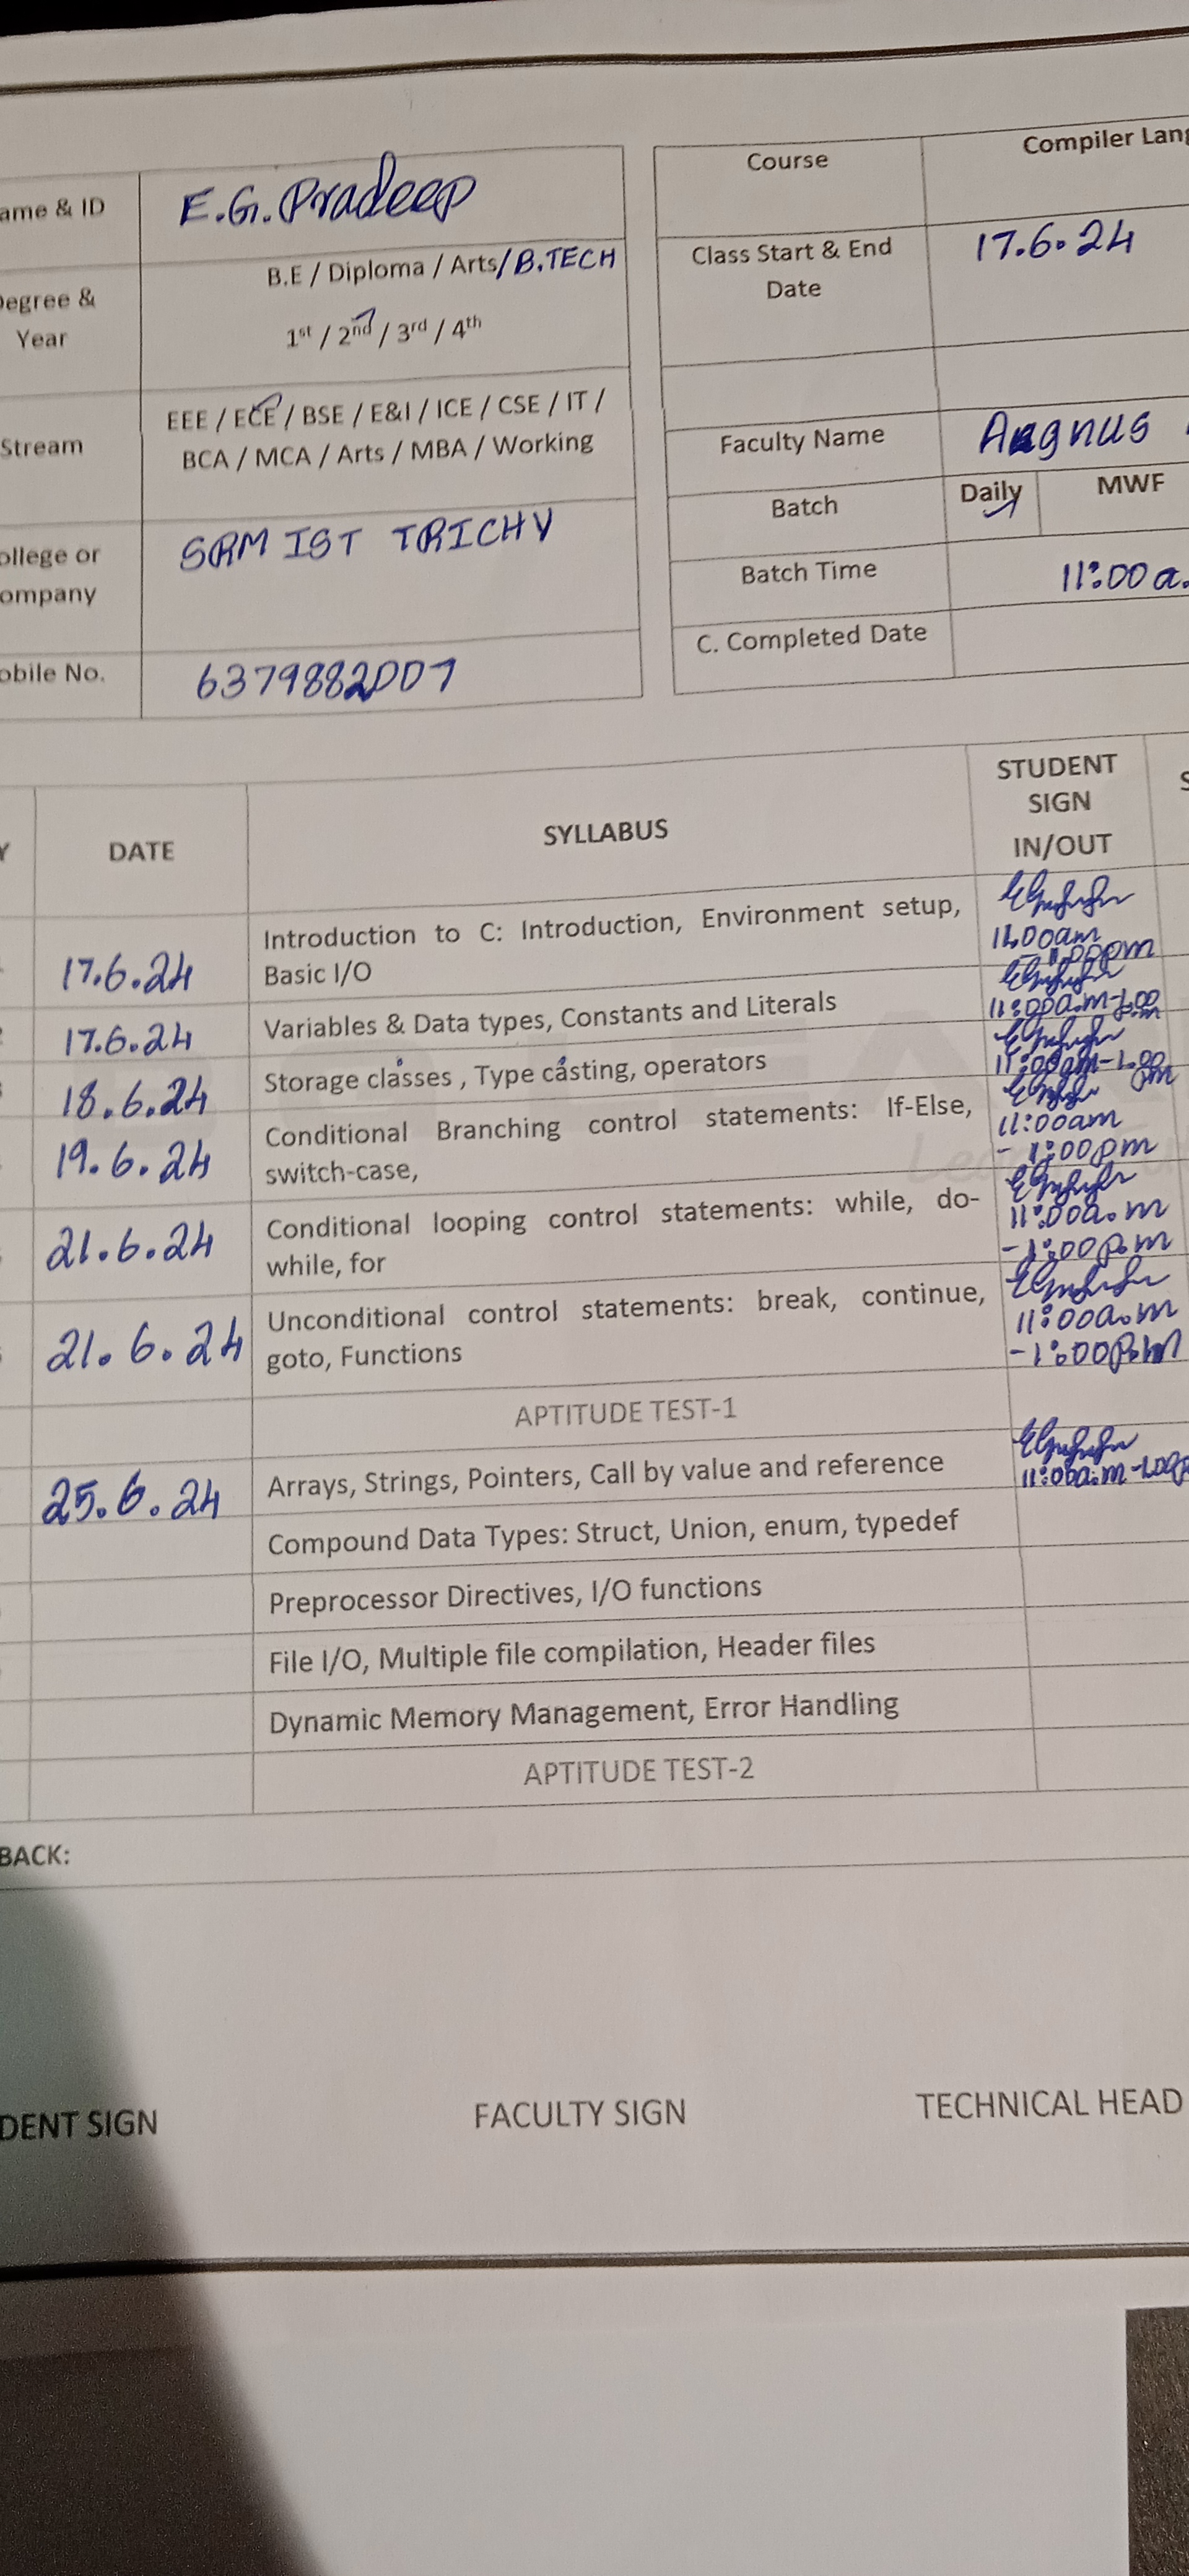 ame & ID
E.G.Pradeep
egree &
Year
B.E / Diploma / Arts/B.TECH
1st / 2nd / 3rd / 4th
Stream
EEE / ECE / BSE / E&I / ICE / CSE / IT /
BCA / MCA / Arts / MBA / Working
ollege or
ompany
SRM IST TRICHY
obile No.
6379882007
Course
Compiler Lang
Class Start & End
Date
17.6.24
Faculty Name
Batch
Daily
MWF
Batch Time
11:00 a.
C. Completed Date
Y
DATE
SYLLABUS
STUDENT
SIGN
IN/OUT
S
17.6.24
Introduction to C: Introduction, Environment setup,
Basic I/O
11.00am
17.6.24
Variables & Data types, Constants and Literals
11:00a.m-1.00
18.6.24
Storage classes , Type casting, operators
11:00am-1.00
pm
19.6.24
Conditional Branching control statements: If-Else,
switch-case,
11:00am
- 1:00pm
21.6.24
Conditional looping control statements: while, do-
while, for
11:00a.m
-1:00p.m
21.6.24
Unconditional control statements: break, continue,
goto, Functions
11:00a.m
-1:00p.m
APTITUDE TEST-1
25.6.24
Arrays, Strings, Pointers, Call by value and reference
11:00a.m-1.00p
Compound Data Types: Struct, Union, enum, typedef
Preprocessor Directives, I/O functions
File I/O, Multiple file compilation, Header files
Dynamic Memory Management, Error Handling
APTITUDE TEST-2
BACK:
DENT SIGN
FACULTY SIGN
TECHNICAL HEAD